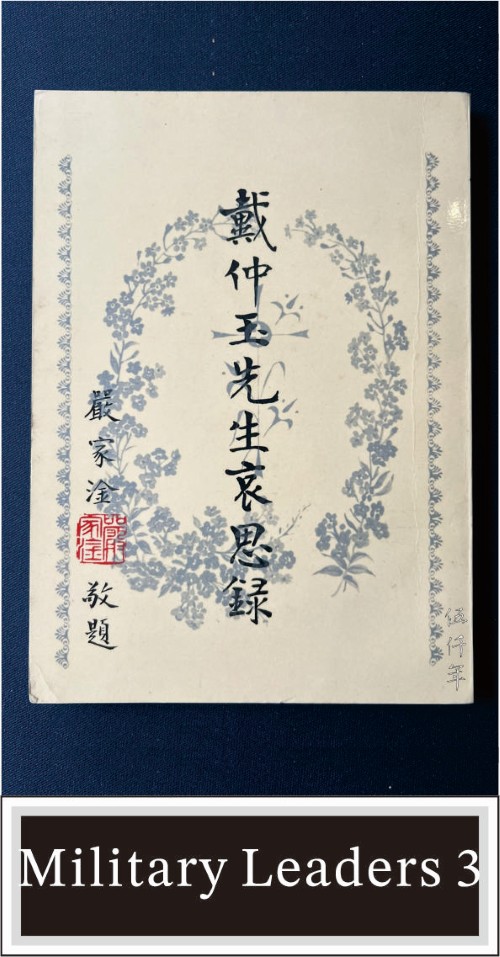 戴仲玉先生哀思録
嚴家淦
嚴家淦
敬題
伍仟年
Military Leaders 3